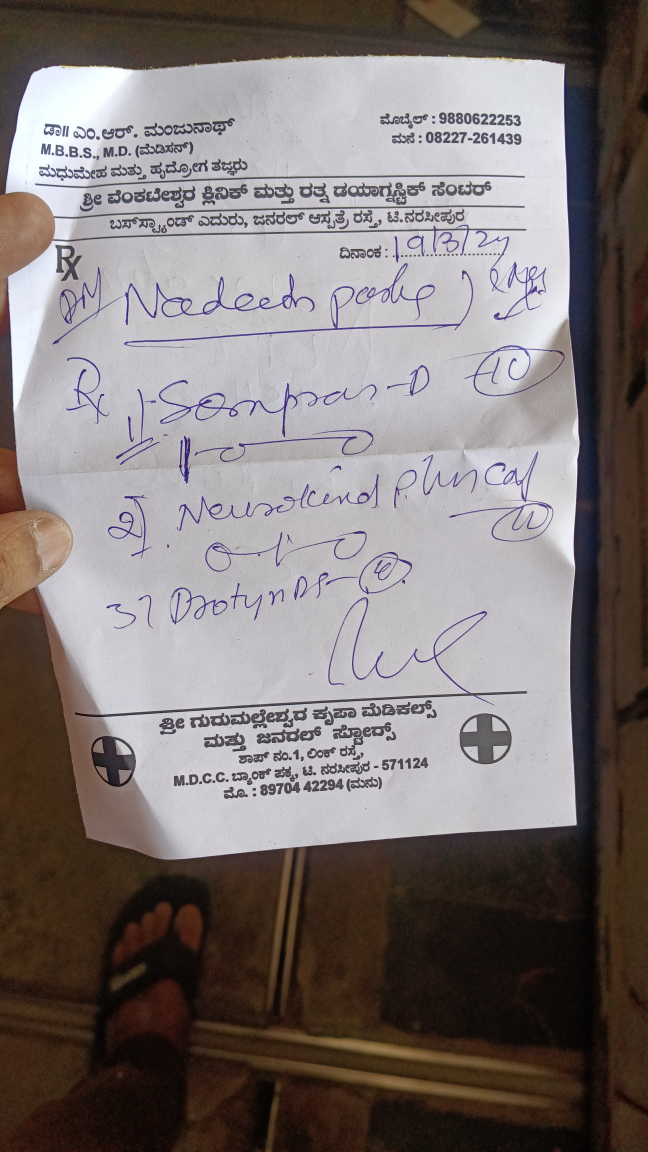 ಡಾ॥ ಎಂ.ಆರ್. ಮಂಜುನಾಥ್
M.B.B.S., M.D. (ಮೆಡಿಸನ್)
ಮಧುಮೇಹ ಮತ್ತು ಹೃದ್ರೋಗ ತಜ್ಞರು
ಮೊಬೈಲ್ : 9880622253
ಮನೆ : 08227-261439
ಶ್ರೀ ವೆಂಕಟೇಶ್ವರ ಕ್ಲಿನಿಕ್ ಮತ್ತು ರತ್ನ ಡಯಾಗ್ನಸ್ಟಿಕ್ ಸೆಂಟರ್
ಬಸ್‌ಸ್ಟ್ಯಾಂಡ್ ಎದುರು, ಜನರಲ್ ಆಸ್ಪತ್ರೆ ರಸ್ತೆ, ಟಿ.ನರಸೀಪುರ
Rx
ದಿನಾಂಕ : 19/3/24
Rx 1) Sompraz-D 10
1-0-0
2) Neurokind plus cap 10
0-1-0
3)
ಶ್ರೀ ಗುರುಮಲ್ಲೇಶ್ವರ ಕೃಪಾ ಮೆಡಿಕಲ್ಸ್
ಮತ್ತು ಜನರಲ್ ಸ್ಟೋರ್ಸ್
ಶಾಪ್ ನಂ.1, ಲಿಂಕ್ ರಸ್ತೆ,
M.D.C.C. ಬ್ಯಾಂಕ್ ಪಕ್ಕ, ಟಿ. ನರಸೀಪುರ - 571124
ಮೊ. : 89704 42294 (ಮನು)